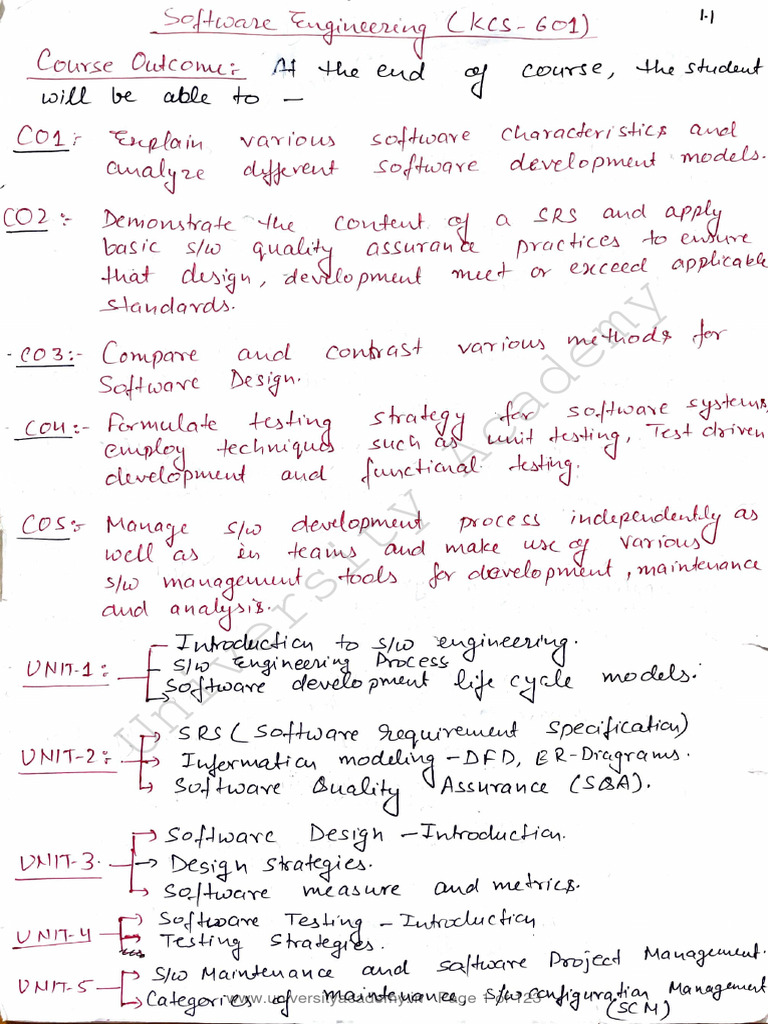 Software Engineering (KCS-601)
1.1
Course Outcome:- At the end of course, the student
will be able to -
CO1:- Explain various software characteristics and
analyze different software development models.
CO2:- Demonstrate the content of a SRS and apply
basic s/w quality assurance practices to ensure
that design, development meet or exceed applicable
standards.
CO3:- Compare and contrast various methods for
Software Design.
CO4:- Formulate testing strategy for software systems,
employ techniques such as unit testing, Test driven
development and functional testing.
CO5:- Manage s/w development process independently as
well as in teams and make use of various
s/w management tools for development, maintenance
and analysis.
UNIT-1:- → Introduction to s/w engineering.
→ S/w Engineering Process
→ Software development life cycle models.
UNIT-2:- → SRS (Software requirement specification)
→ Information modeling - DFD, ER-Diagrams.
→ Software Quality Assurance (SQA).
UNIT-3. → Software Design - Introduction.
→ Design strategies.
→ Software measure and metrics.
UNIT-4 → Software Testing - Introduction
→ Testing Strategies.
UNIT-5 → S/w Maintenance and software Project Management.
→ Categories of maintenance s/w configuration Management
(SCM)
University Academy
www.universityacademy.in Page 1 of 123